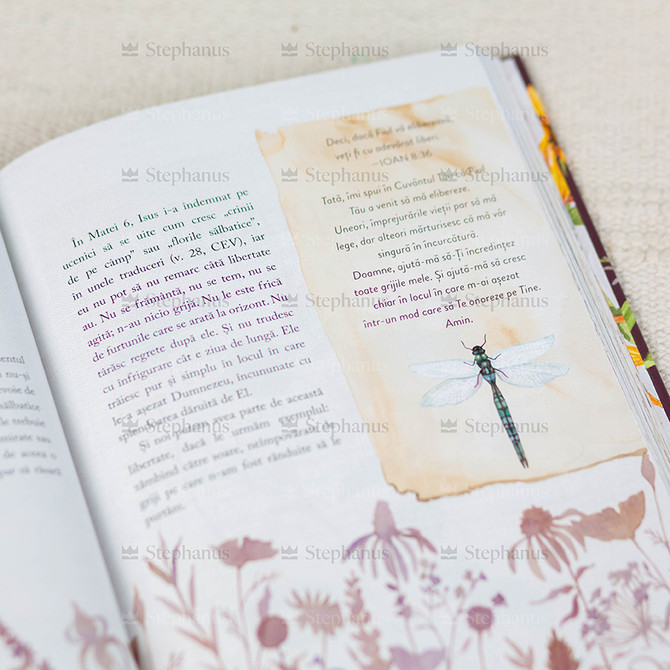 În Matei 6, Isus i-a îndemnat pe
ucenici să se uite cum cresc „crinii
de pe câmp” sau „florile sălbatice”,
în unele traduceri (v. 28, CEV), iar
eu nu pot să nu remarc câtă libertate
au. Nu se frământă, nu se tem, nu se
agită; n-au nicio grijă. Nu le este frică
de furtunile care se arată la orizont. Nu
târăsc regrete după ele. Și nu trudesc
cu înfrigurare cât e ziua de lungă. Ele
trăiesc pur și simplu în locul în care
le-a așezat Dumnezeu, încununate cu
splendoarea dăruită de El.
Și noi putem avea parte de această
libertate, dacă le urmăm exemplul:
zâmbind către soare, neîmpovărați de
griji pe care n-am fost rânduite să le
purtăm.
Deci, dacă Fiul vă eliberează,
veți fi cu adevărat liberi.
—IOAN 8:36
Tată, îmi spui în Cuvântul Tău că Fiul
Tău a venit să mă elibereze.
Uneori, împrejurările vieții par să mă
lege, dar alteori mărturisesc că mă văr
singură în încurcătură.
Doamne, ajută-mă să-Ți încredințez
toate grijile mele. Și ajută-mă să cresc
chiar în locul în care m-ai așezat
într-un mod care să Te onoreze pe Tine.
Amin.
Stephanus